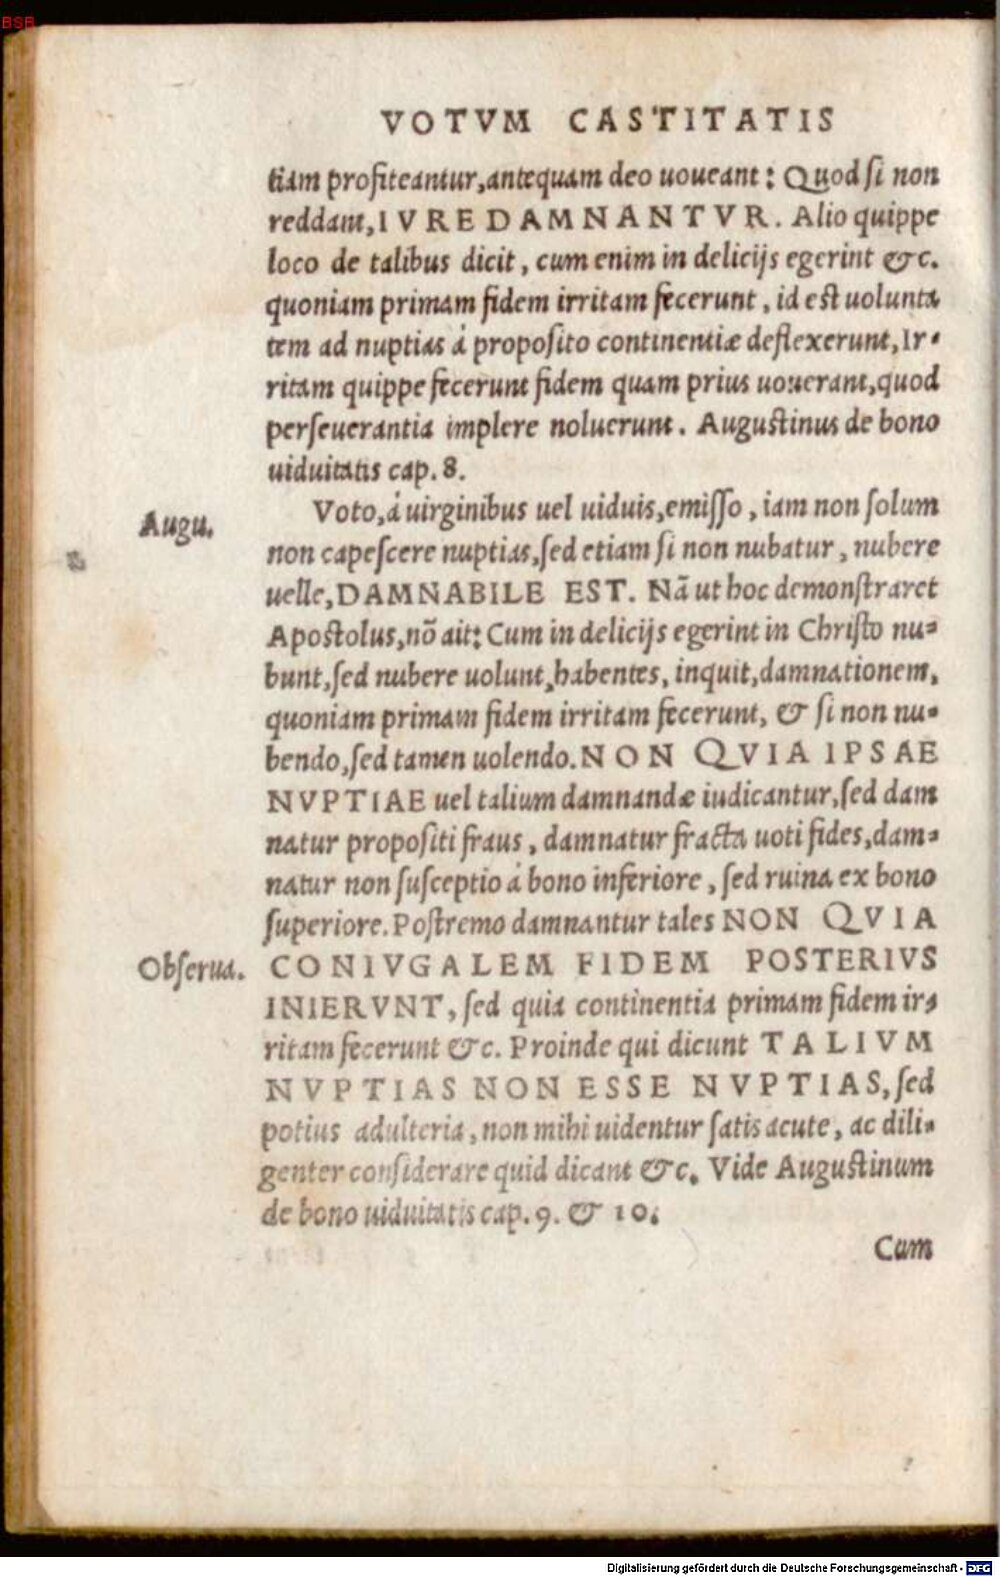 BSB
VOTVM CASTITATIS
tiam profiteantur, antequam deo uoueant: Quod si non
reddant, IVRE DAMNANTVR. Alio quippe
loco de talibus dicit, cum enim in delicijs egerint &c.
quoniam primam fidem irritam fecerunt, id est uolunta
tem ad nuptias á proposito continentiæ deflexerunt, Ir-
ritam quippe fecerunt fidem quam prius uouerant, quod
perseuerantia implere noluerunt. Augustinus de bono
uiduitatis cap. 8.
Augu.
Voto, á uirginibus uel uiduis, emisso, iam non solum
non capescere nuptias, sed etiam si non nubatur, nubere
uelle, DAMNABILE EST. Nã ut hoc demonstraret
Apostolus, nõ ait: Cum in delicijs egerint in Christo nu-
bunt, sed nubere uolunt, habentes, inquit, damnationem,
quoniam primam fidem irritam fecerunt, & si non nu-
bendo, sed tamen uolendo. NON QVIA IPSAE
NVPTIAE uel talium damnandæ iudicantur, sed dam
natur propositi fraus, damnatur fracta uoti fides, dam-
natur non susceptio á bono inferiore, sed ruina ex bono
superiore. Postremo damnantur tales NON QVIA
Obserua.
CONIVGALEM FIDEM POSTERIVS
INIERVNT, sed quia continentia primam fidem ir-
ritam fecerunt &c. Proinde qui dicunt TALIVM
NVPTIAS NON ESSE NVPTIAS, sed
potius adulteria, non mihi uidentur satis acute, ac dili-
genter considerare quid dicant &c. Vide Augustinum
de bono uiduitatis cap. 9. & 10.
Cum
Digitalisierung gefördert durch die Deutsche Forschungsgemeinschaft - DFG